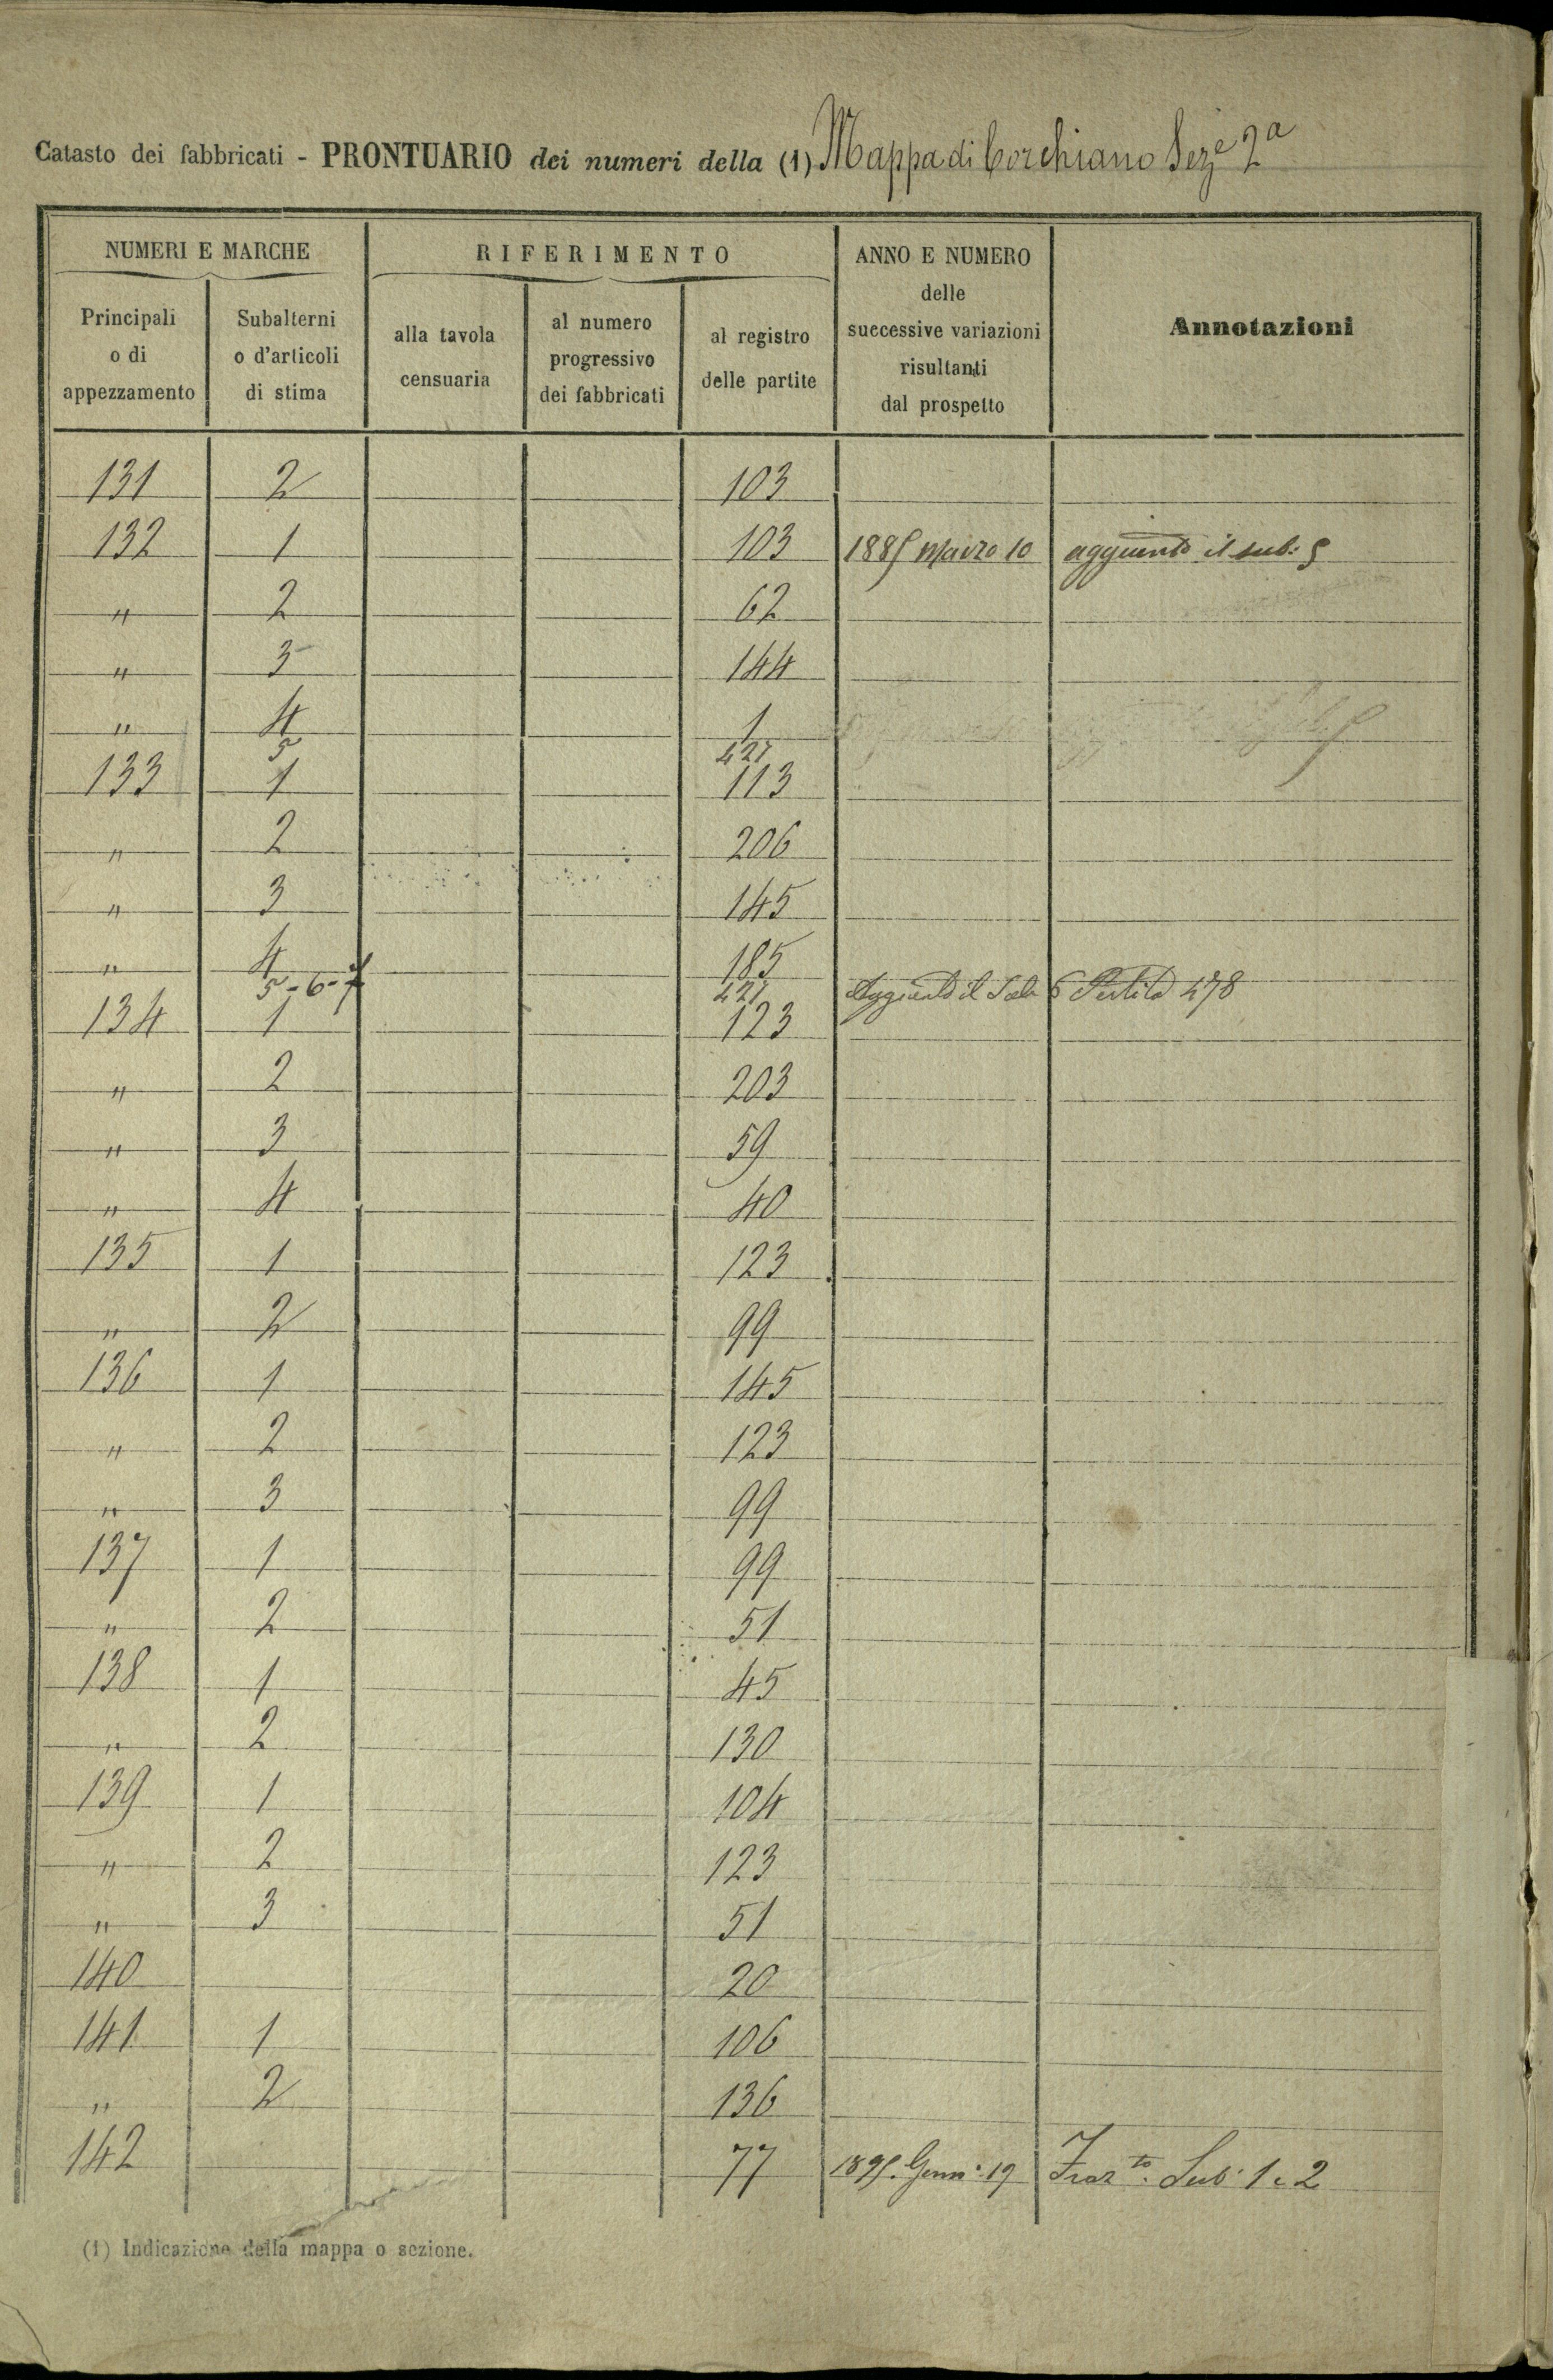 Catasto dei fabbricati - PRONTUARIO dei numeri della (1) Mappa di Corchiano Sez.e 2a
NUMERI E MARCHE
RIFERIMENTO
ANNO E NUMERO
delle
successive variazioni
risultanti
dal prospetto
Annotazioni
Principali
o di
appezzamento
Subalterni
o d'articoli
di stima
alla tavola
censuaria
al numero
progressivo
dei fabbricati
al registro
delle partite
131 2 103
132 1 103 1885 Marzo 10 aggiunto il sub: 5
" 2 62
" 3 144
" 4 1
5 427
133 1 113
" 2 206
" 3 145
" 4 185
5-6-7 427 Aggiunto il Sub 6 Partita 478
134 1 123
" 2 203
" 3 59
" 4 40
135 1 123
" 2 99
136 1 145
" 2 123
" 3 99
137 1 99
" 2 51
138 1 45
" 2 130
139 1 104
" 2 123
" 3 51
140 20
141 1 106
" 2 136
142 77 1895. Genn. 19 Fraz.to Sub. 1 e 2
(1) Indicazione della mappa o sezione.